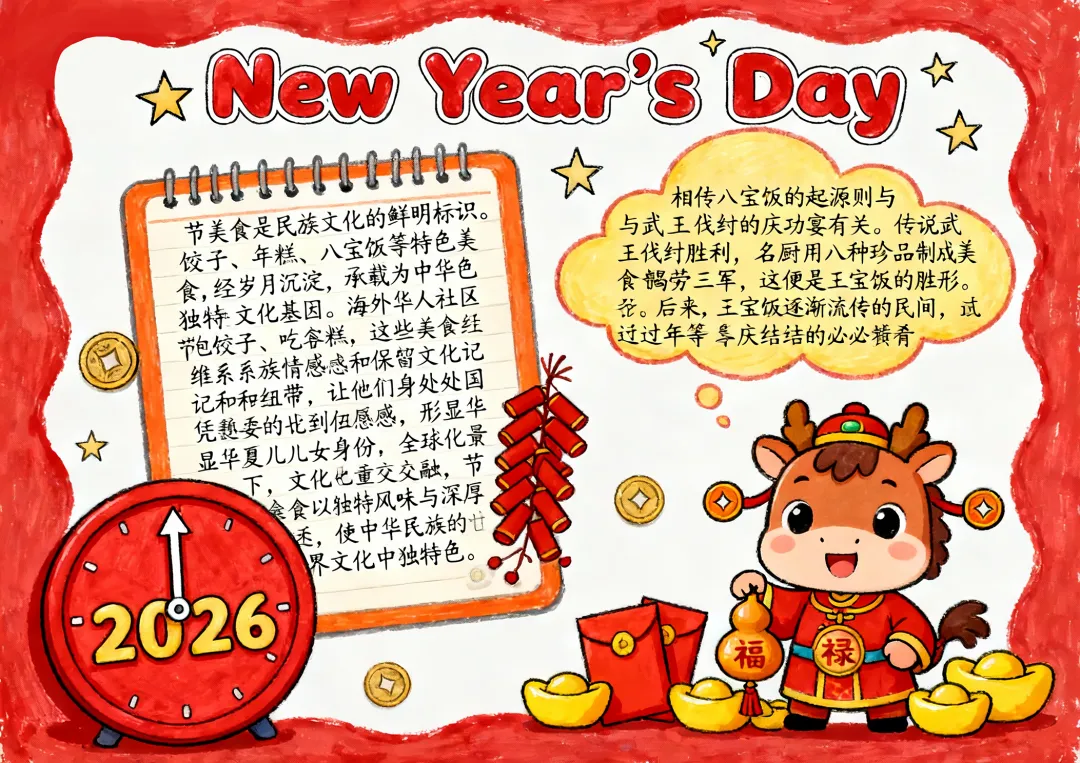 New Year's Day
节美食是民族文化的鲜明标识。
饺子、年糕、八宝饭等特色美
食，经岁月沉淀，承载为中华色
独特 文化基因。海外华人社区
包饺子、吃 糕，这些美食
维系系族情感感和保留文化记
记和和纽带，让他们身处处国
凭 委的 到 愿感，形显华
显华夏儿儿女身份，全球化景
下，文化 重交交融，节
食以独特风味与深厚
，使中华民族的
界文化中独特色。
相传八宝饭的起源则与
与武王伐纣的庆功宴有关。传说武
王伐纣胜利，名厨用八种珍品制成美
食 劳三军，这便是王宝饭的胜形。
后来，王宝饭逐渐流传的民间，
过过年等 庆结结的必必 肴
2026
福
禄